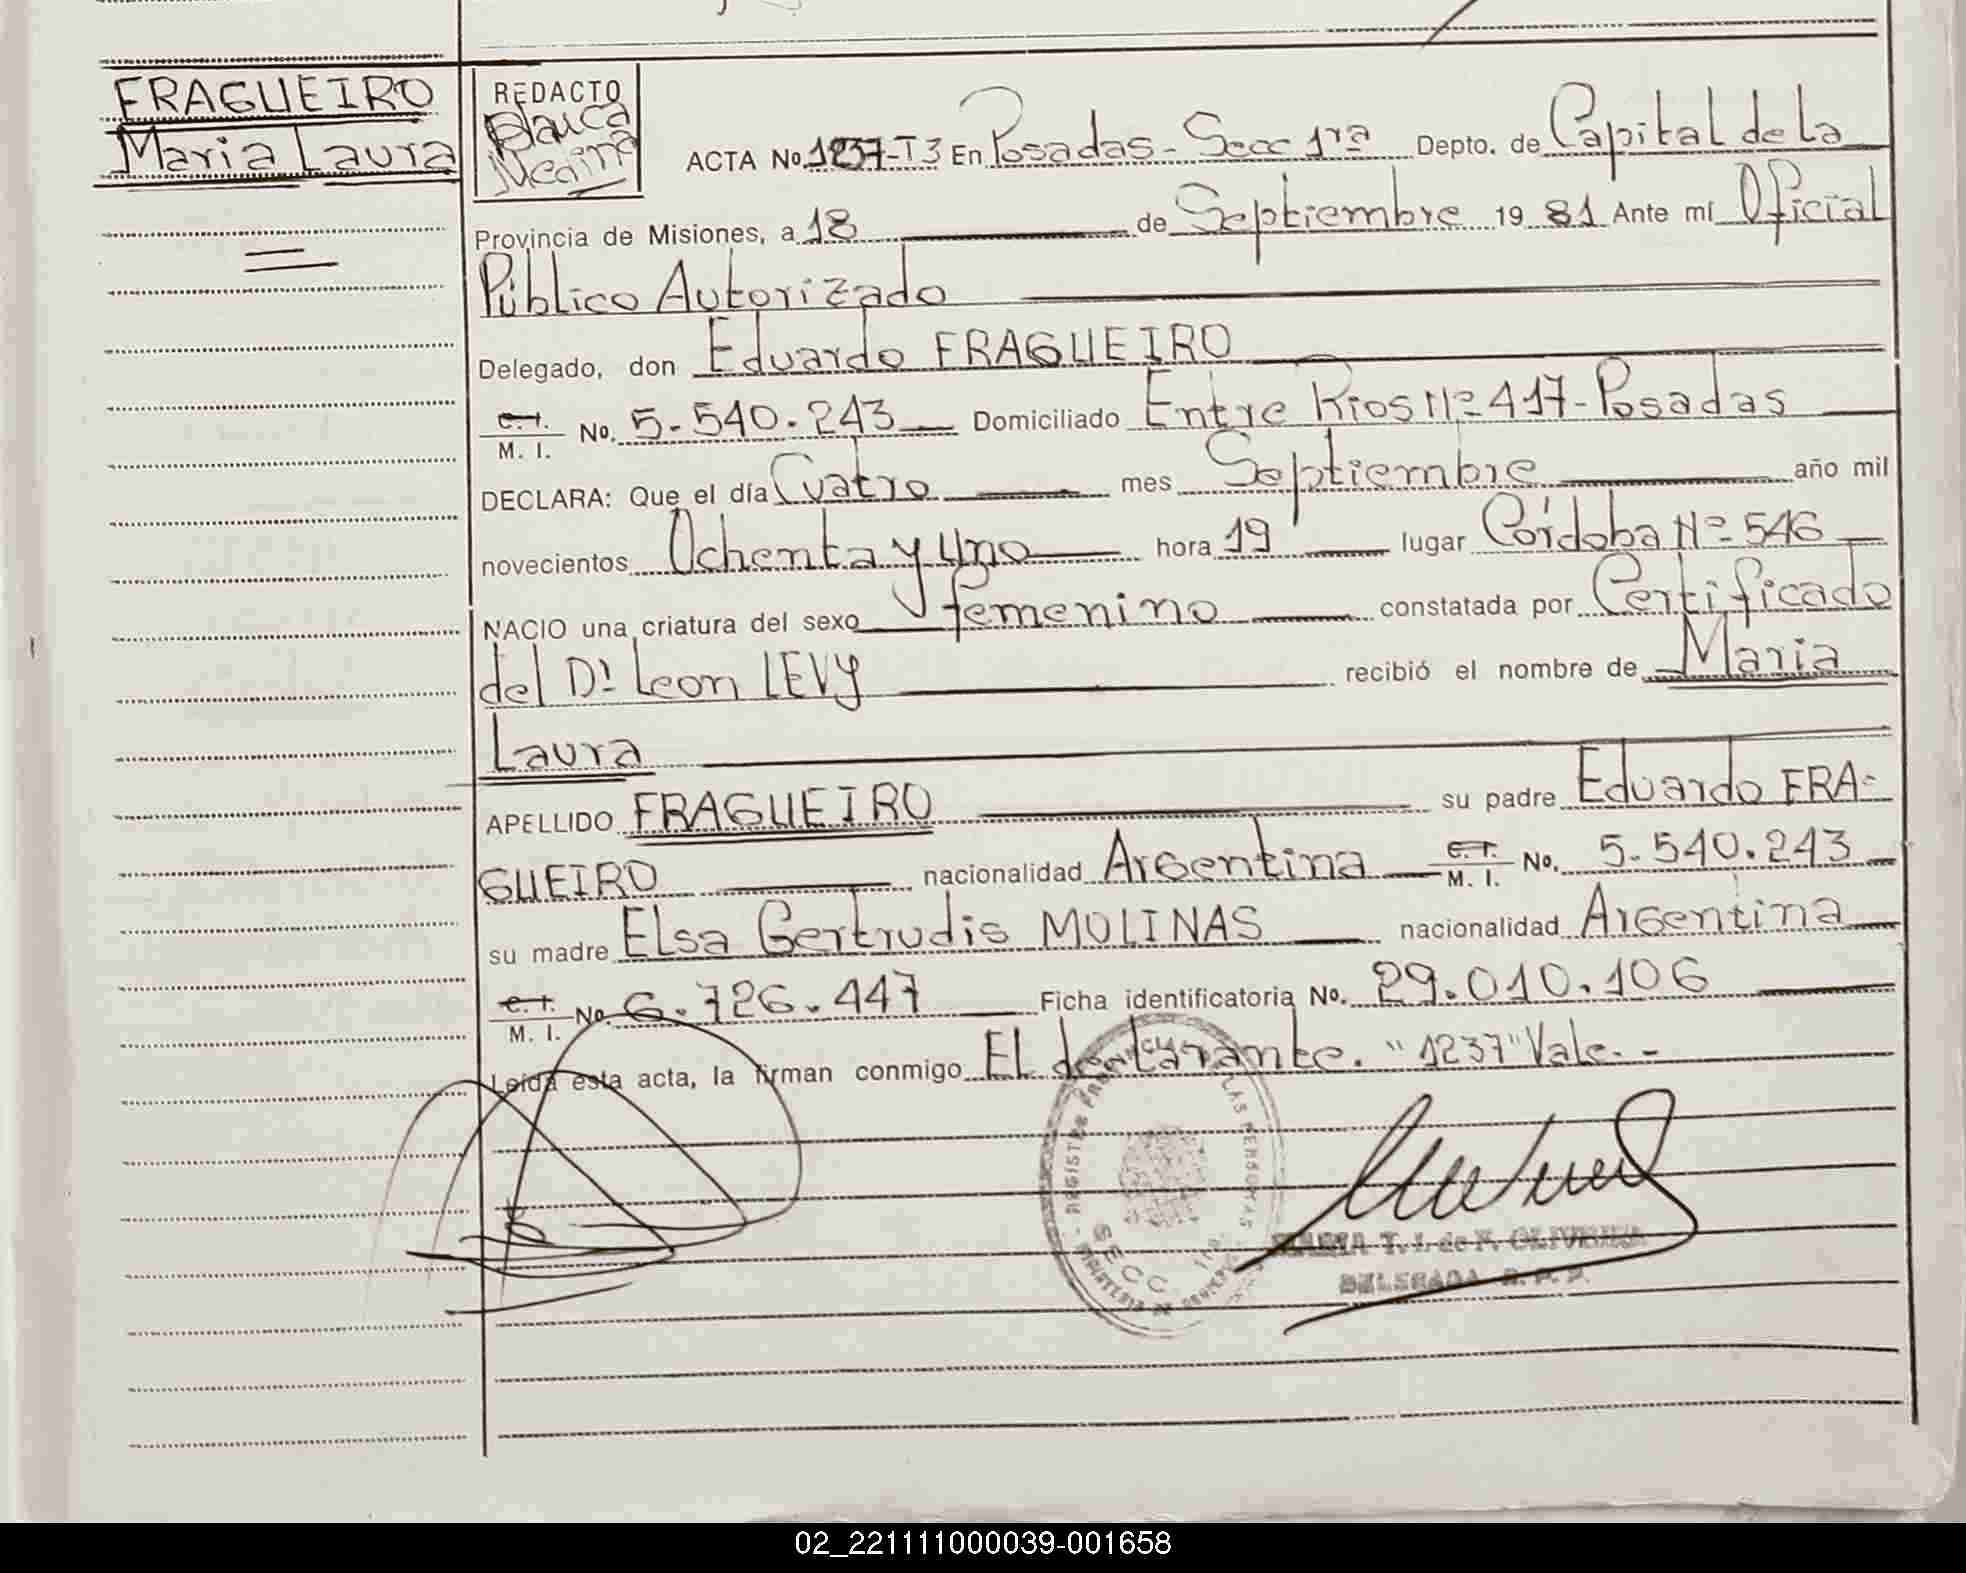 FRAGUEIRO
Maria Laura
REDACTO
Blanca
ACTA No. 1237-T3 En Posadas - Secc 1ra Depto. de Capital de la
Provincia de Misiones, a 18 de Septiembre 19 81 Ante mí Oficial
Público Autorizado
Delegado, don Eduardo FRAGUEIRO
C. I. M. I. No. 5.540.243 Domiciliado Entre Rios Nº 417 - Posadas
DECLARA: Que el día Cuatro mes Septiembre año mil
novecientos Ochenta y Uno hora 19 lugar Córdoba Nº 546
NACIO una criatura del sexo femenino constatada por Certificado
del Dr Leon LEVY recibió el nombre de Maria
Laura
APELLIDO FRAGUEIRO su padre Eduardo FRA-
GUEIRO nacionalidad Argentina C. I. M. I. No. 5.540.243
su madre Elsa Gertrudis MOLINAS nacionalidad Argentina
C. I. M. I. No. 6.726.447 Ficha identificatoria No. 29.010.106
Leída esta acta, la firman conmigo El declarante. "1237" Vale.-
REGISTRO PROVINCIAL DE LAS PERSONAS
SECC 1ra
MARIA T. I. de F. OLIVEIRA
DELEGADA R. P. P.
02_221111000039-001658